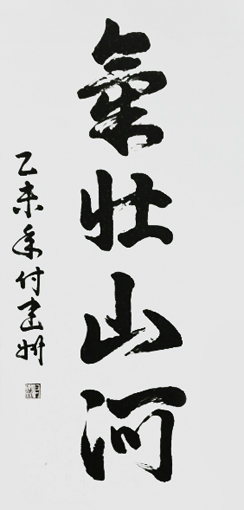 氣壯山河
乙未年付建州